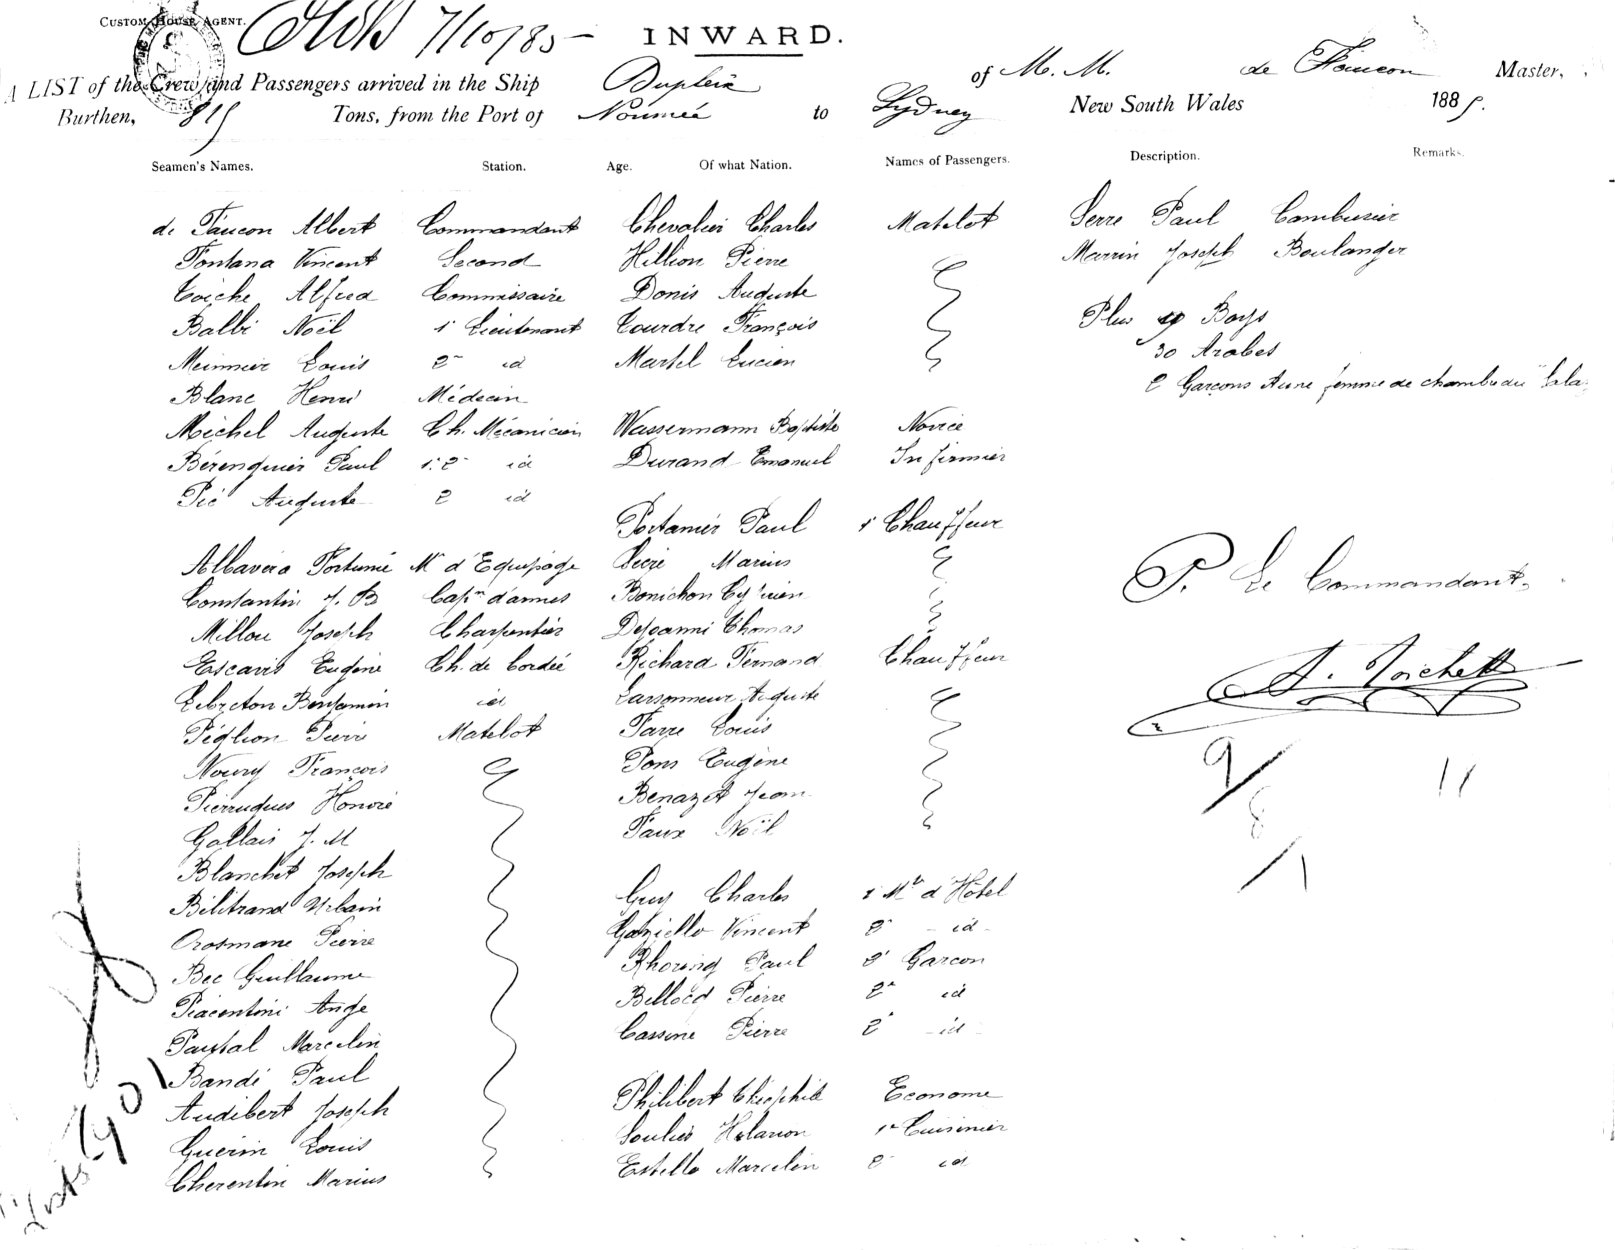 CUSTOM HOUSE AGENT.
7/10/85 INWARD.
A LIST of the Crew and Passengers arrived in the Ship Dupleix of M. M. de Faucon Master,
Burthen, 815 Tons, from the Port of Nouméa to Sydney New South Wales 1885.
Seamen's Names. Station. Age. Of what Nation. Names of Passengers. Description. Remarks.
de Faucon Albert Commandant
Fontana Vincent Second
Alfred Commissaire
Balbi Noël 1r Lieutenant
Meinnier Louis 2e id
Blanc Henri Médecin
Michel Auguste Ch. Mécanicien
Bérenguier Paul 1. 2e id
Pié Auguste 2 id
Albavera Fortuné Me d'Equipage
Constantin J. B Capne d'armes
Millou Joseph Charpentier
Escavis Eugène Ch. de bordée
Lebreton Benjamin id
Péglion Pierre Matelot
Noury François
Pierrugues Honoré
Gallais J. M
Blanchet Joseph
Bélitrand Urbain
Orosmane Pierre
Bec Guillaume
Piacentini Ange
Pautal Marcelin
Bandi Paul
Audibert Joseph
Guérin Louis
Cherentin Marius
Chevalier Charles Matelot
Hillion Pierre
Donis Auguste
Tourdre François
Martel Lucien
Wassermann Baptiste Novice
Durand Emanuel Infirmier
Portanier Paul 1r Chauffeur
Marius
Bonichon Cyprien
Dejoanni Thomas
Richard Fernand Chauffeur
Larsonneur Auguste
Farre Louis
Pons Eugène
Benazet Jean
Faux Noël
Guy Charles 1r Me d'Hôtel
Gabriello Vincent 2e id
Rhoring Paul 2e Garcon
Bellocq Pierre 2e id
Cassine Pierre 2e id
Philibert Théophile Econome
Soulier Hilarion 1er Cuisinier
Estello Marcelin 2e id
Serre Paul Cambusier
Marrin Joseph Boulanger
Plus Boys
30 Arabes
2 Garçons & une femme de chambre du
P. Le Commandant
9/
8
/1
11